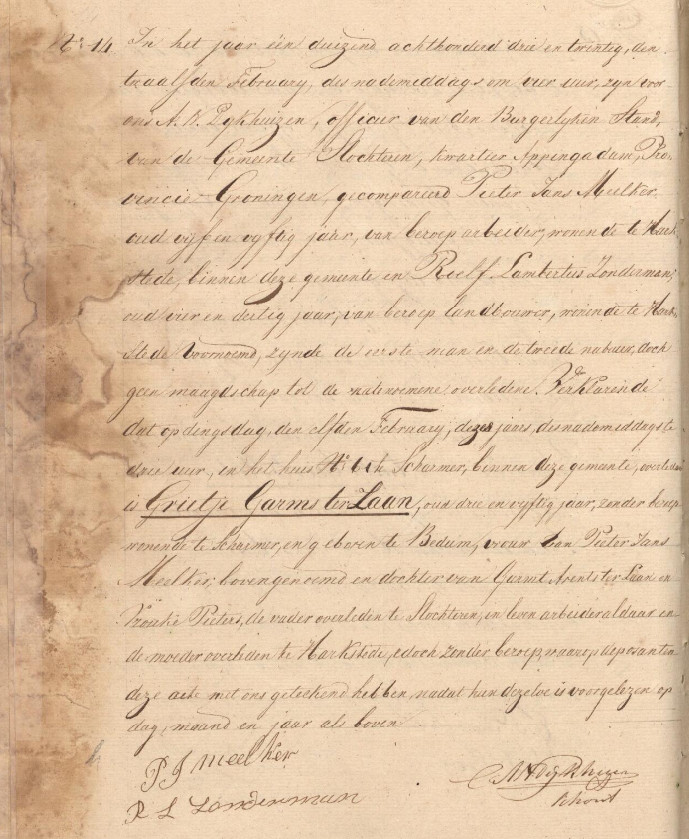 No 14 In het jaar één duizend achthonderd drie en twentig, den
twaalfden February, des nademiddags om vier uur, zyn voor
ons A. K. Dykhuizen, officier van den Burgerlyken Stand,
van de Gemeente Slochteren, kwartier Appingadam, Pro
vincie Groningen, gecompareerd Pieter Jans Meelker,
oud vyf en vyftig jaar, van beroep arbeider, wonende te Hark
stede, binnen deze gemeente en Roelf Lambertus Zonderman,
oud vier en dertig jaar, van beroep landbouwer, wonende te Hark
stede voornoemd, zynde de eerste man en de tweede nabuur, doch
geen maagdschap tot de overledene. Verklarende
dat op dingsdag, den elfden February, dezes jaars, des nademiddags te
drie uur, in het huis No Scharmer, binnen deze gemeente, overleden
is Grietje Garms ter Laan, oud drie en vyftig jaar, zonder beroep
wonende te Scharmer, en geboren te Bedum, vrouw van Pieter Jans
Meelker, bovengenoemd en dochter van Garmt Arents ter Laan en
Vrouke Pieters, de vader overleden te Slochteren, in leven arbeider aldaar en
de moeder overleden te Harkstede, edoch zonder beroep, waarop deposanten
deze acte met ons geteekend hebben, nadat hun dezelve is voorgelezen op
dag, maand en jaar als boven
P J Meelker
R L Zonderman
Dykhuizen
Schout